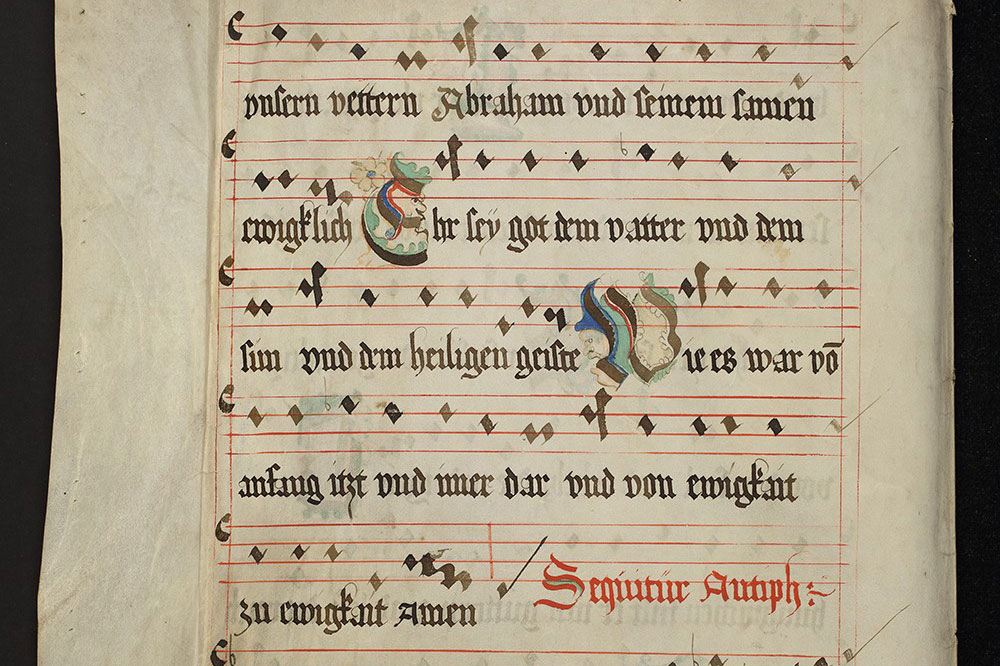 vnsern vettern Abraham vnd seinem samen
ewigklich Ehr sey got dem vatter vnd dem
sun vnd dem heiligen geiste Wie es war võ
anfang itzt vnd imer dar vnd von ewigkait
zu ewigkait Amen Sequitur Antiph: